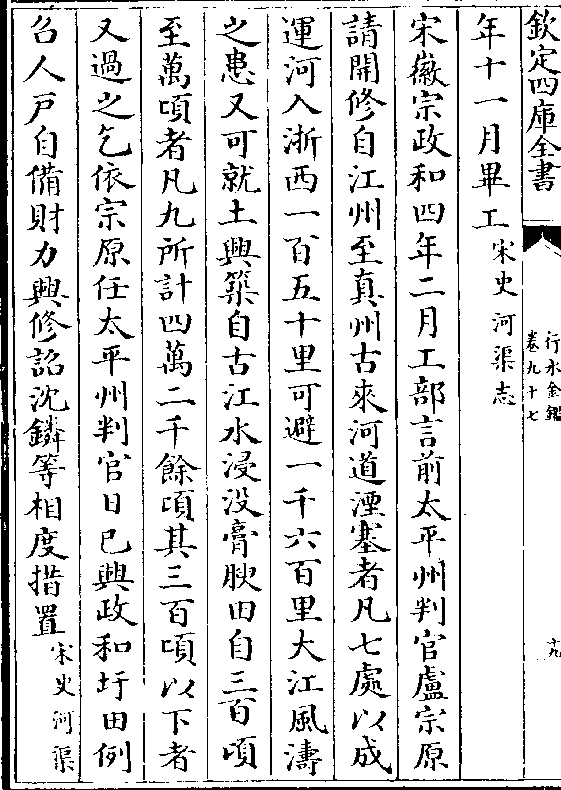 欽定四庫全書
行水金鑑
卷九十七
十九
年十一月畢工宋史河渠志
宋徽宗政和四年二月工部言前太平州判官盧宗原
請開修自江州至真州古來河道湮塞者凡七處以成
運河入浙西一百五十里可避一千六百里大江風濤
之患又可就土興築自古江水浸没膏腴田自三百頃
至萬頃者凡九所計四萬二千餘頃其三百頃以下者
又過之乞依宗原任太平州判官日已興政和圩田例
召人戸自備財力興修詔沈鏻等相度措置宋史河渠